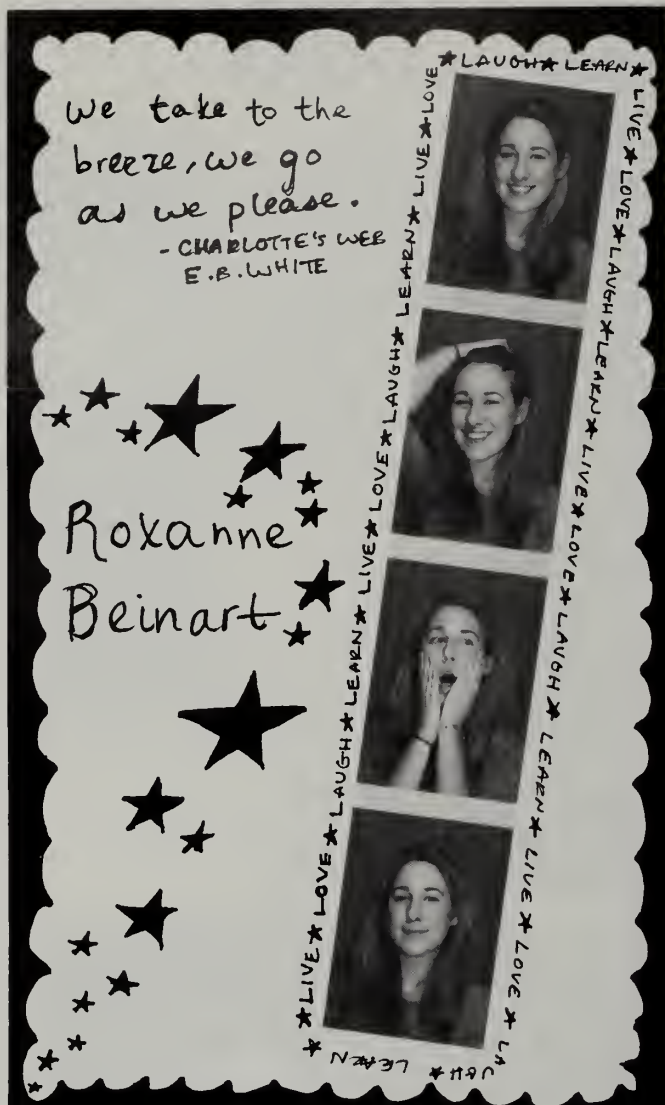 We take to the
breeze, we go
as we please.
- CHARLOTTE'S WEB
E.B. WHITE
Roxanne
Beinart
LIVE ★ LOVE ★ LAUGH ★ LEARN ★ LIVE ★ LOVE ★ LAUGH ★ LEARN ★ LIVE ★ LOVE
★ LAUGH ★ LEARN ★
LIVE ★ LOVE ★ LAUGH ★ LEARN ★ LIVE ★ LOVE ★ LAUGH ★ LEARN ★ LIVE ★ LOVE ★ LA
UGH ★ LEARN ★